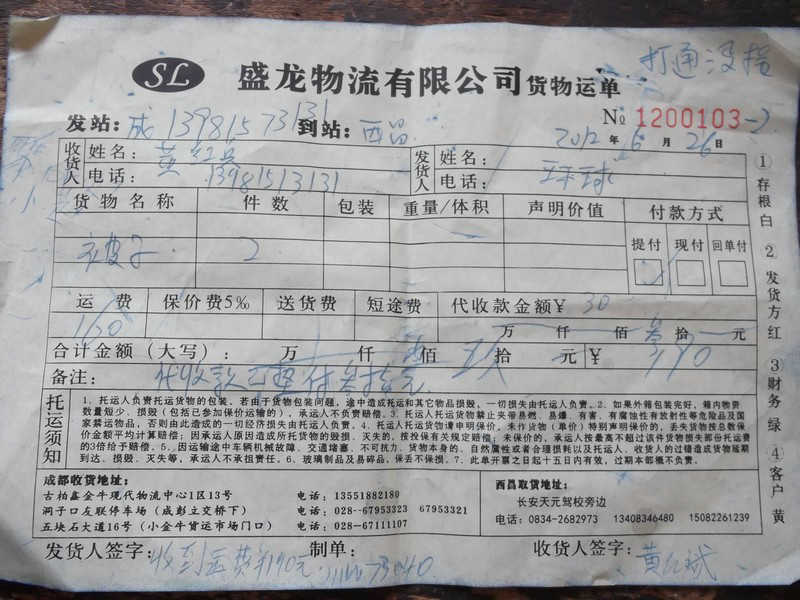 打通没指
SL 盛龙物流有限公司货物运单
№ 1200103
发站: 成 13981573131 到站: 西昌 2012 年 6 月 26 日
收货人 姓名: 黄 发货人 姓名:
电话: 13981513131 电话: 环球
货物名称 件数 包装 重量/体积 声明价值 付款方式
提付 现付 回单付
2
运费 保价费5‰ 送货费 短途费 代收款金额¥ 30
130 万 仟 佰 叁 拾 元
合计金额(大写): 万 仟 佰 拾 元 ¥
备注: 代收款已垫付
托运须知
1、托运人负责托运货物的包装。若由于货物包装问题,途中造成托运和其它物品损毁,一切损失由托运人负责。2、如果外箱包装完好,箱内物资
数量短少、损毁(包括已参加保价运输的),承运人不负责赔偿。3、托运人托运货物禁止夹带易燃、易爆、有害、有腐蚀性有放射性等危险品及国
家禁运物品,否则由此造成的一切经济损失由托运人负责。4、托运人托运货物请申明保价。未作货物(单价)特别声明保价的,丢失货物按总数保
价金额平均计算赔偿;因承运人原因造成所托货物的毁损、灭失的,按投保有关规定赔偿;未保价的,承运人按最高不超过该件货物损失部份托运费
的3倍给予赔偿。5、因运输途中车辆机械故障、交通堵塞、不可抗力、货物本身的、自然属性或者合理损耗以及托运人、收货人的过错造成货物延期
到达、损毁、灭失等,承运人不承担责任。6、玻璃制品及易碎品,保丢不保损。7、此单开票之日起十五日内有效,过期本部概不负责。
成都收货地址:
古柏鑫金牛现代物流中心1区13号 电话: 13551882180
洞子口友联停车场(成彭立交桥下) 电话: 028-67953323 67953321
五块石大道16号(小金牛货运市场门口) 电话: 028-67111107
西昌取货地址:
长安天元驾校旁边
电话: 0834-2682973 13408346480 15082261239
发货人签字: 收到运费¥190元 制单: 收货人签字: 黄
①存根白 ②发货方红 ③财务绿 ④客户黄